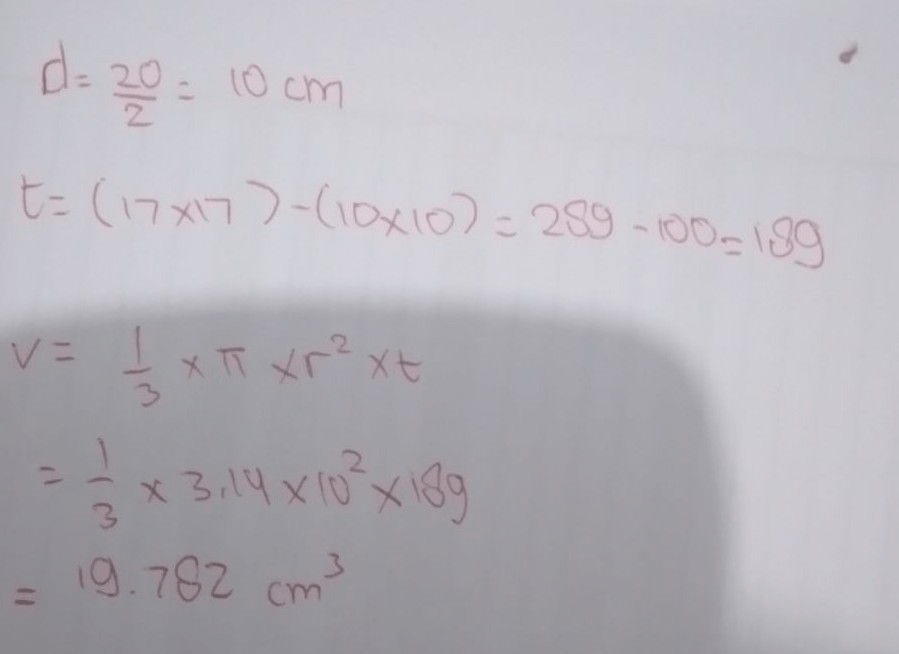 d = 20/2 = 10 cm
t = (17×17) - (10×10) = 289 - 100 = 189
V = 1/3 × π × r² × t
= 1/3 × 3,14 × 10² × 189
= 19.782 cm³